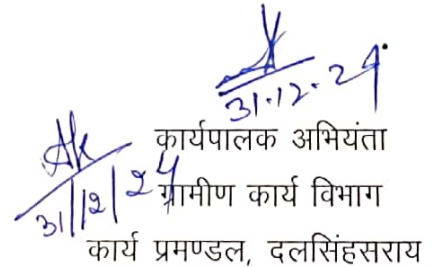 31.12.24
Ak
31/12/24
कार्यपालक अभियंता
ग्रामीण कार्य विभाग
कार्य प्रमण्डल, दलसिंहसराय